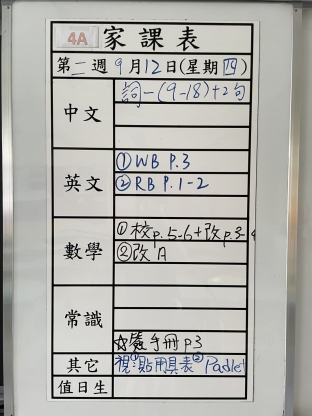 4A 家課表
第二週 9月12日(星期四)
中文
詞一(9-18)+2句
英文
①WB P.3
②RB P.1-2
數學
①校p.5-6+改p.3-4
②改A
常識
手冊p3
其它
視:①貼用具表②Padlet
值日生